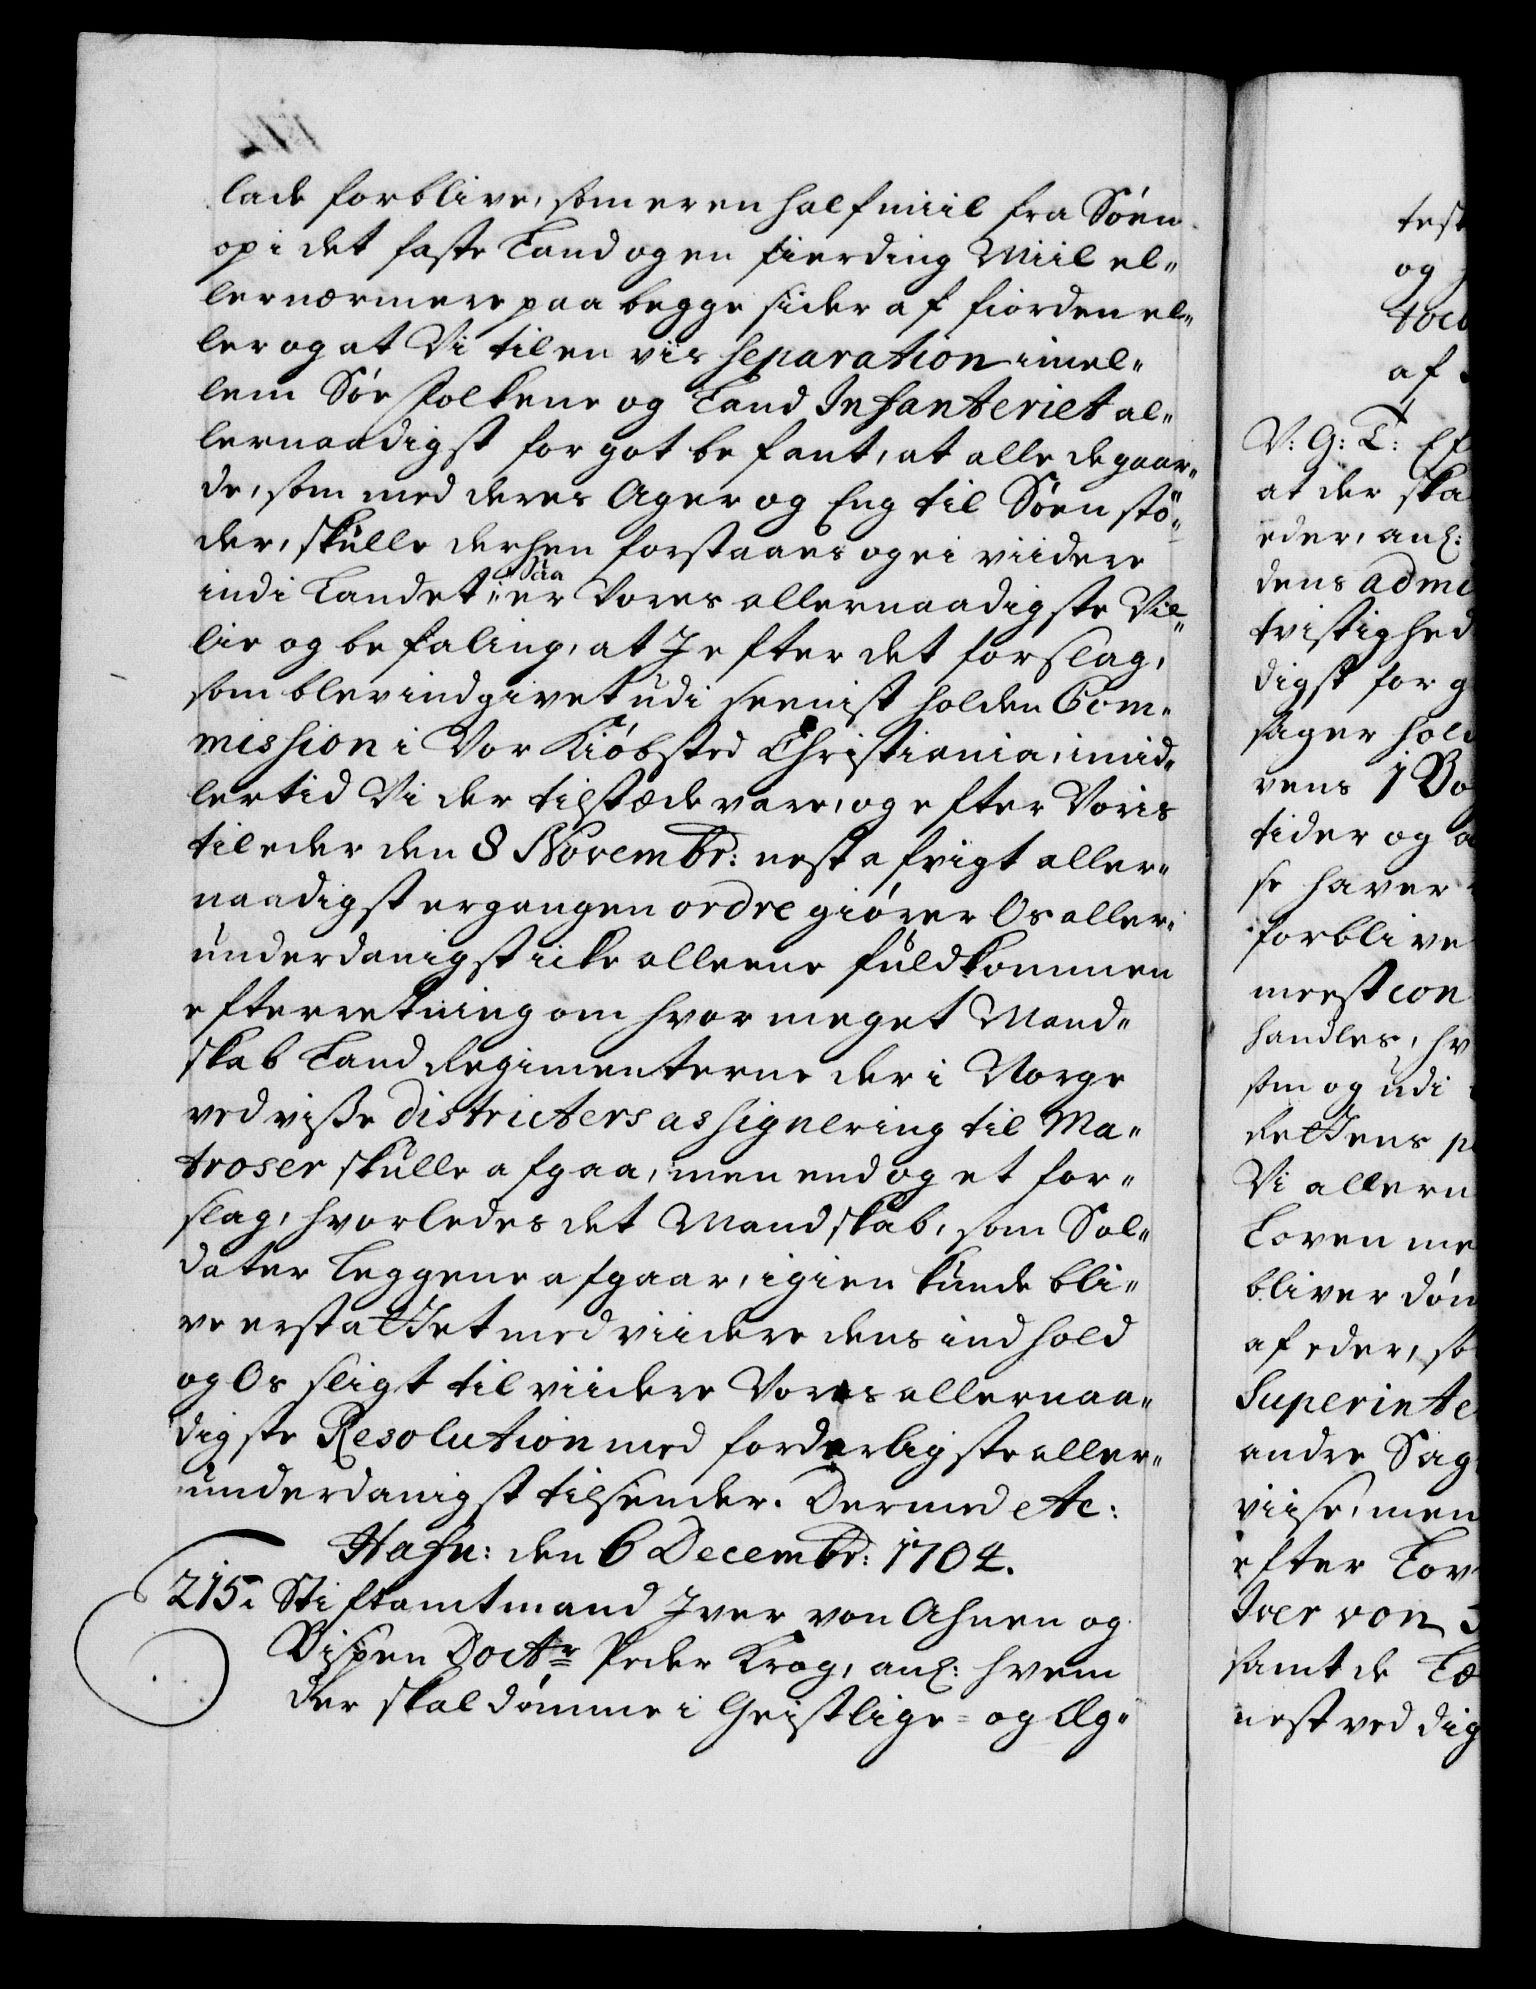 lade forblive, som er en half miil fra Söen
op i det faste Land og en fierding Miil el„
ler nærmere paa begge sider af fiorden el„
ler og at Vi til en vis separation imel„
lem Söe folkene og Land Infanteriet al„
lernaadigst for got befant, at alle de gaar„
de, som med deres Ager og Eng til Söen stö„
der, skulle derhen forstaaes og ei viidere
ind i Landet; saa er Vores allernaadigste Vil„
lie og befaling, at I efter det forslag,
som blev indgivet udi seenist holden Com„
mission i Vor Kiöbsted Christiania, imid„
lertid Vi der tilstæde vare, og efter Voris
til eder den 8 Novembr: nest afvigt aller„
naadigst ergangen ordre giörer Os aller„
underdanigst icke alleene fuldkommen
efterretning om hvor meget Mand„
skab Land Regimenterne der i Norge
ved visse districters assignering til Ma„
troser skulle afgaa, men end og et for„
slag, hvorledes det Mandskab, som Sol„
dater Leggene afgaar, igien kunde bli„
ve erstattet med viidere dens indhold
og Os sligt til viidere Vores allernaa„
digste Resolution med forderligste aller„
underdanigst tilsender. Dermed etc:
Hafn: den 6 Decembr: 1704.
215. Stiftamtmand Iver von Ahnen og
Bispen Doctr Peder Krog, anl: hvem
der skal dömme i Geistlige= og Æg„
test
og
af
V: G: T: Ef
at der ska
eder, anl:
dens admi
tvistighed
digst for g
sager hold
vens 1 Bo
tider og a
se haver
forblive
meest con
handles, hv
som og udi
rettens p
Vi allern
Loven me
bliver döm
af eder, so
Superinte
andre Sag
viise, men
efter Lov
Iver von
samt de Læ
nest ved dig